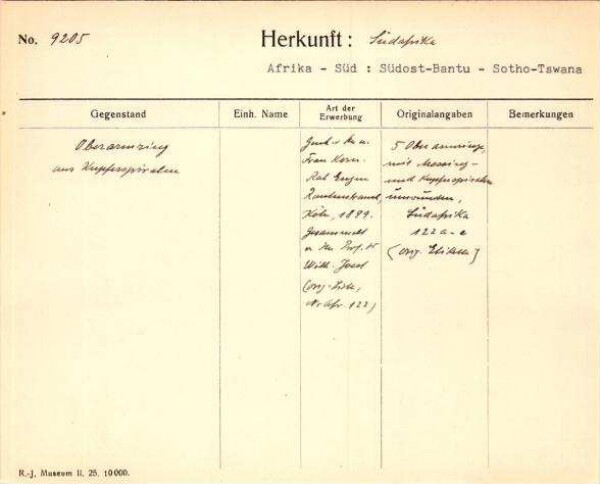 No. 9205 Herkunft: Südafrika
Afrika - Süd : Südost-Bantu - Sotho-Tswana
Gegenstand Einh. Name Art der Erwerbung Originalangaben Bemerkungen
Oberarmring
aus Kupferspiralen
Gesch. v. Hn u.
Frau Kom.
Rat Eugen
Rautenstrauch,
Köln, 1899.
Gesammelt
v. Hn Prof. Dr
Wilh. Joest
(orig. Liste,
Nr Afr. 122)
5 Oberarmringe,
mit Messing-
und Kupferspiralen
umwunden,
Südafrika
122 a-e
(orig. Etikett)
R.-J. Museum II. 25. 10000.